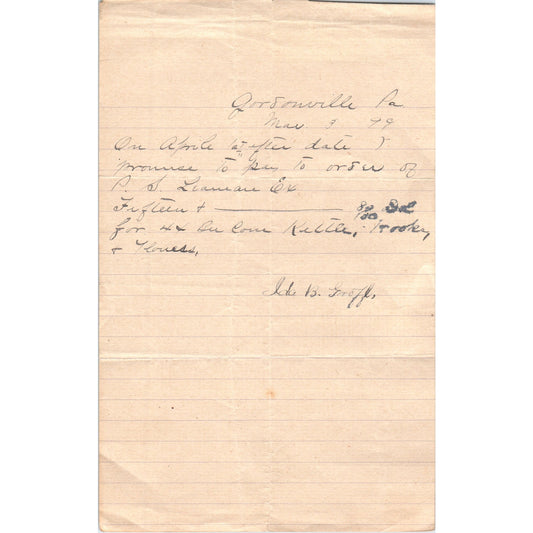 Gordonville Pa
Mar 3 99
On April 1st after date I
promise to pay to order of
P. S. Leaman Ex
Fifteen + 80/100 Dol
for 44 Bu Corn Kettle, Hooks,
+
B. Groff,